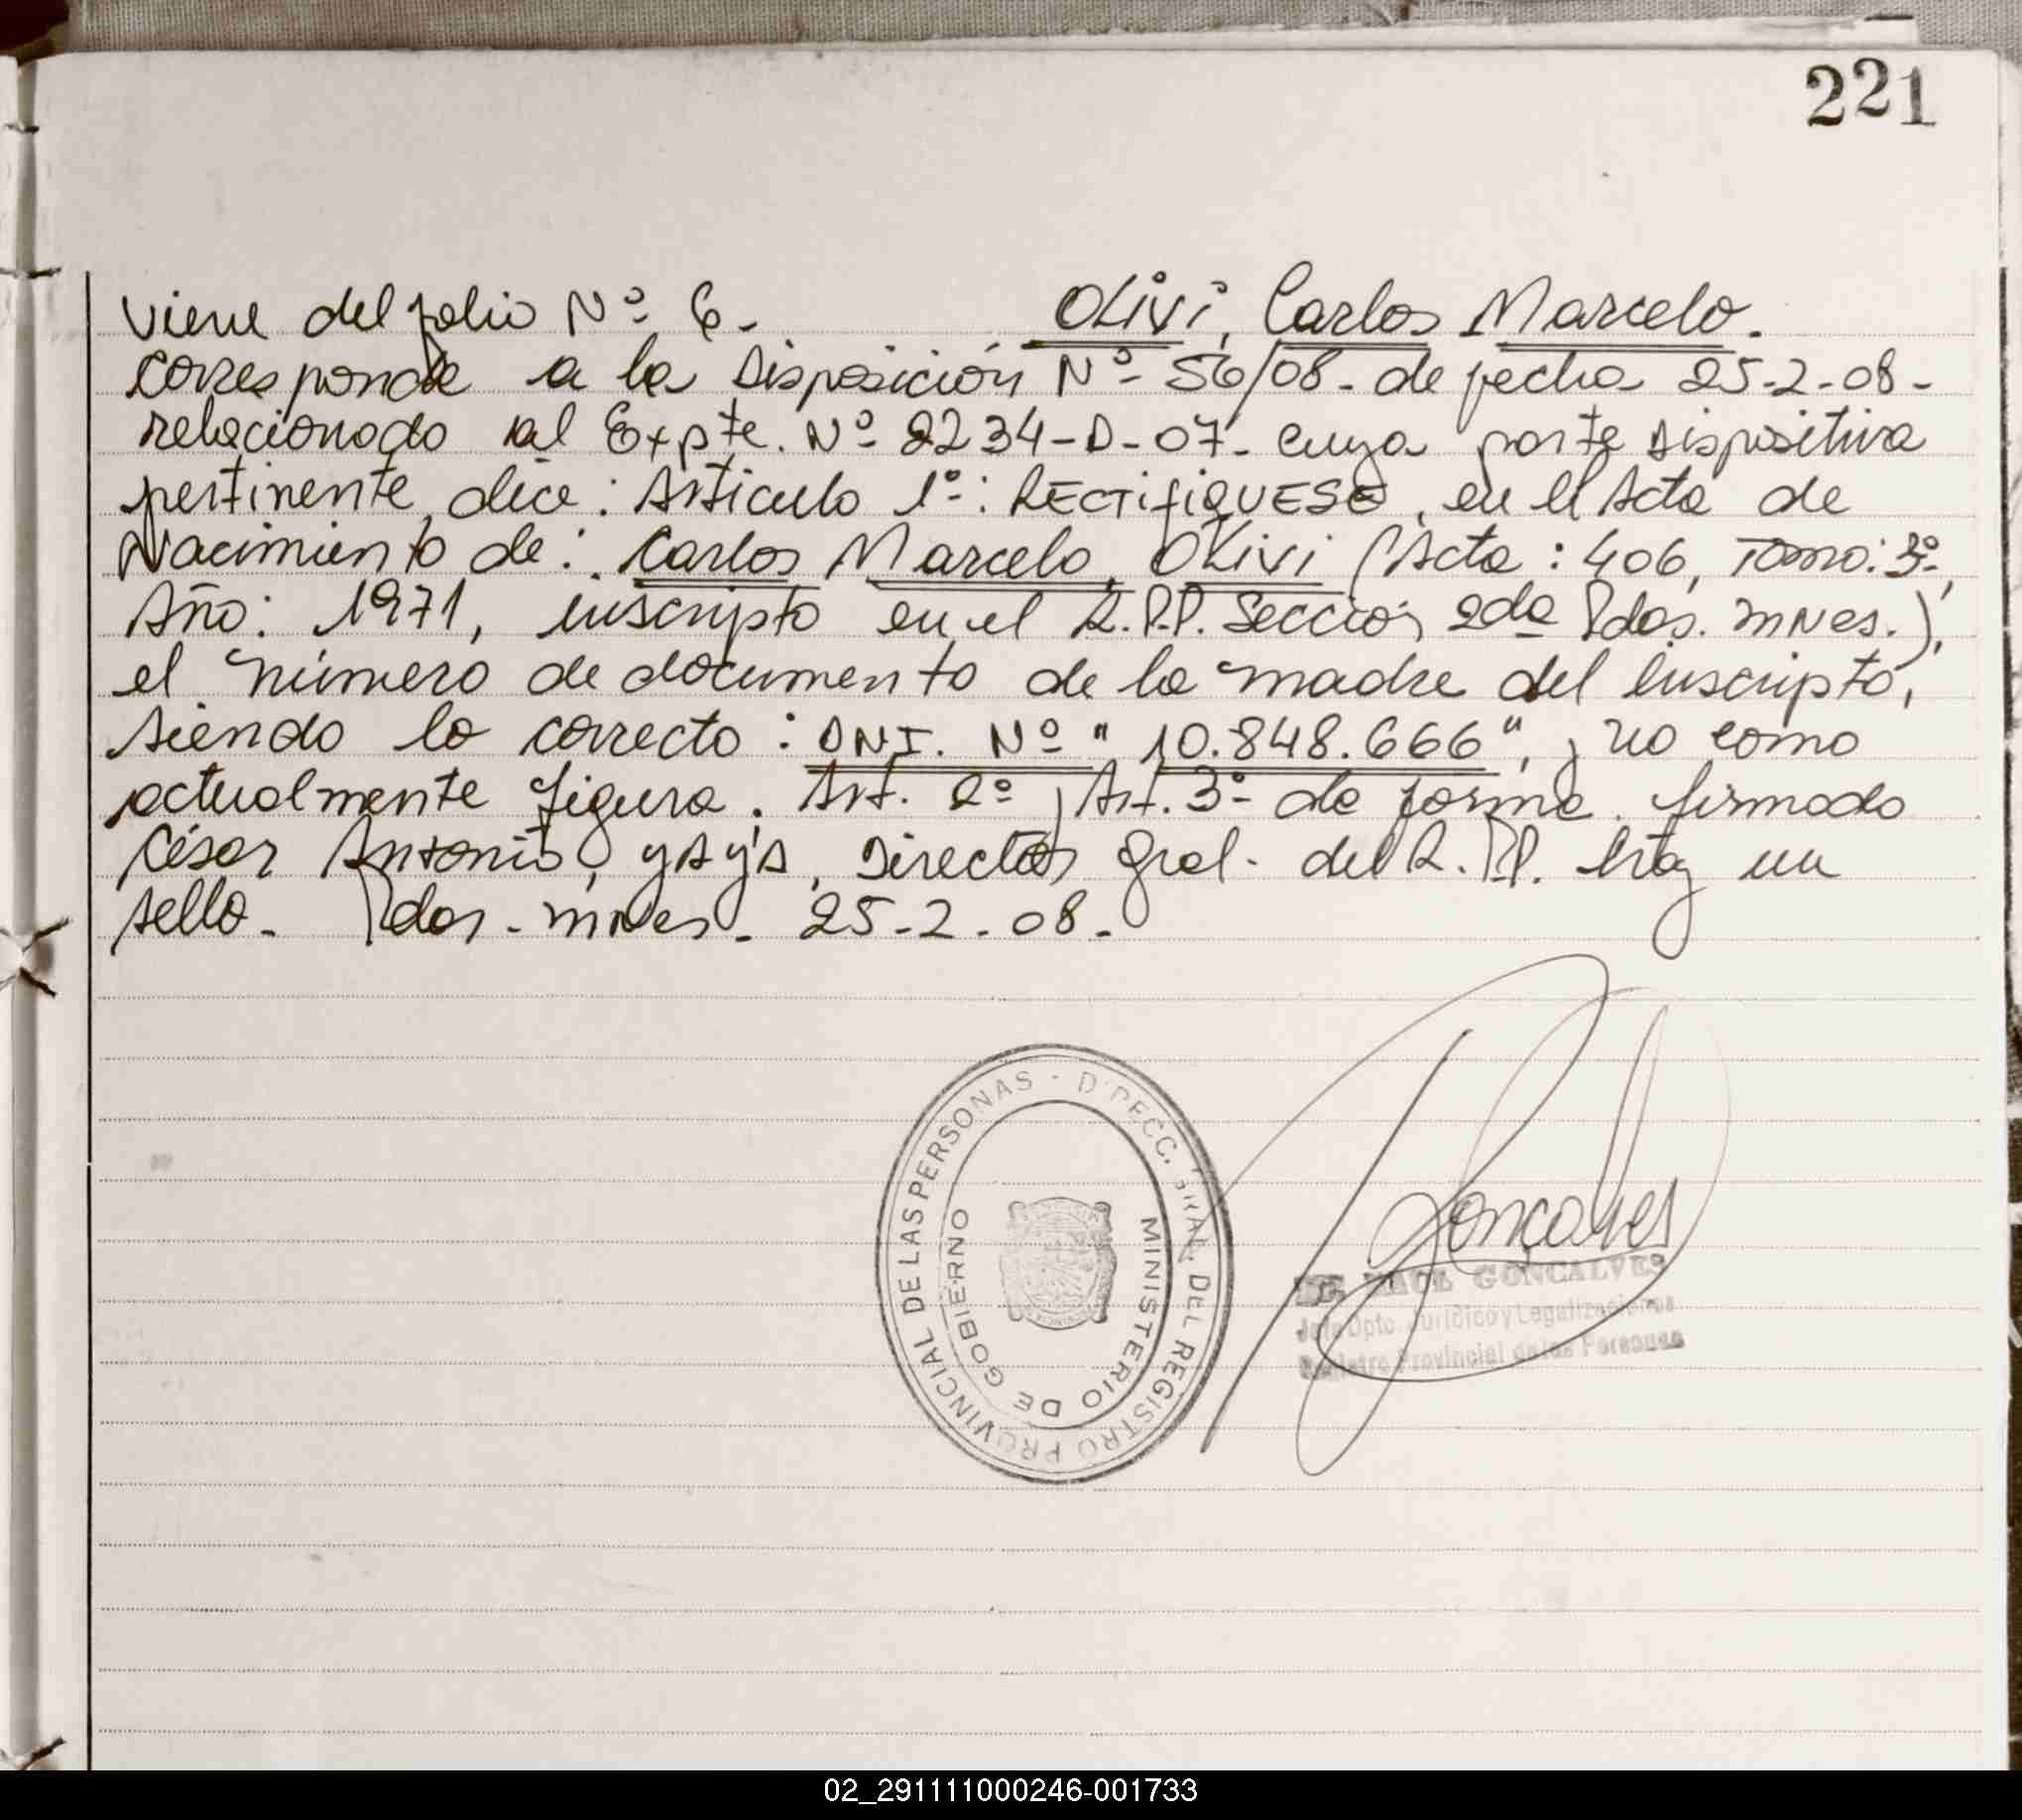 221
Viene del folio Nº 6. Olivi, Carlos Marcelo.
Corresponde a la Disposición Nº 56/08. de fecha 25-2-08-
relacionado al Expte. Nº 2234-D-07. cuya parte dispositiva
pertinente, dice: Artículo 1º: RECTIFIQUESE, en el Acta de
Nacimiento de: Carlos Marcelo Olivi (Acta: 406, Tomo: 3º,
Año: 1971, inscripto en el R.P.P. Sección 2da Pdas. mnes.),
el número de documento de la madre del inscripto,
siendo lo correcto: DNI. Nº "10.848.666", y no como
actualmente figura. Art. 2º y Art. 3º de forma. firmado
César Antonio, Director Gral. del R.P.P. hay un
sello. Pdas. mnes. 25-2-08.
DIRECC. GRAL. DEL REGISTRO PROVINCIAL DE LAS PERSONAS -
MINISTERIO DE GOBIERNO
Goncalves
GONCALVES
Jefe Dpto. Jurídico y Legalizaciones
Registro Provincial de las Personas
02_291111000246-001733